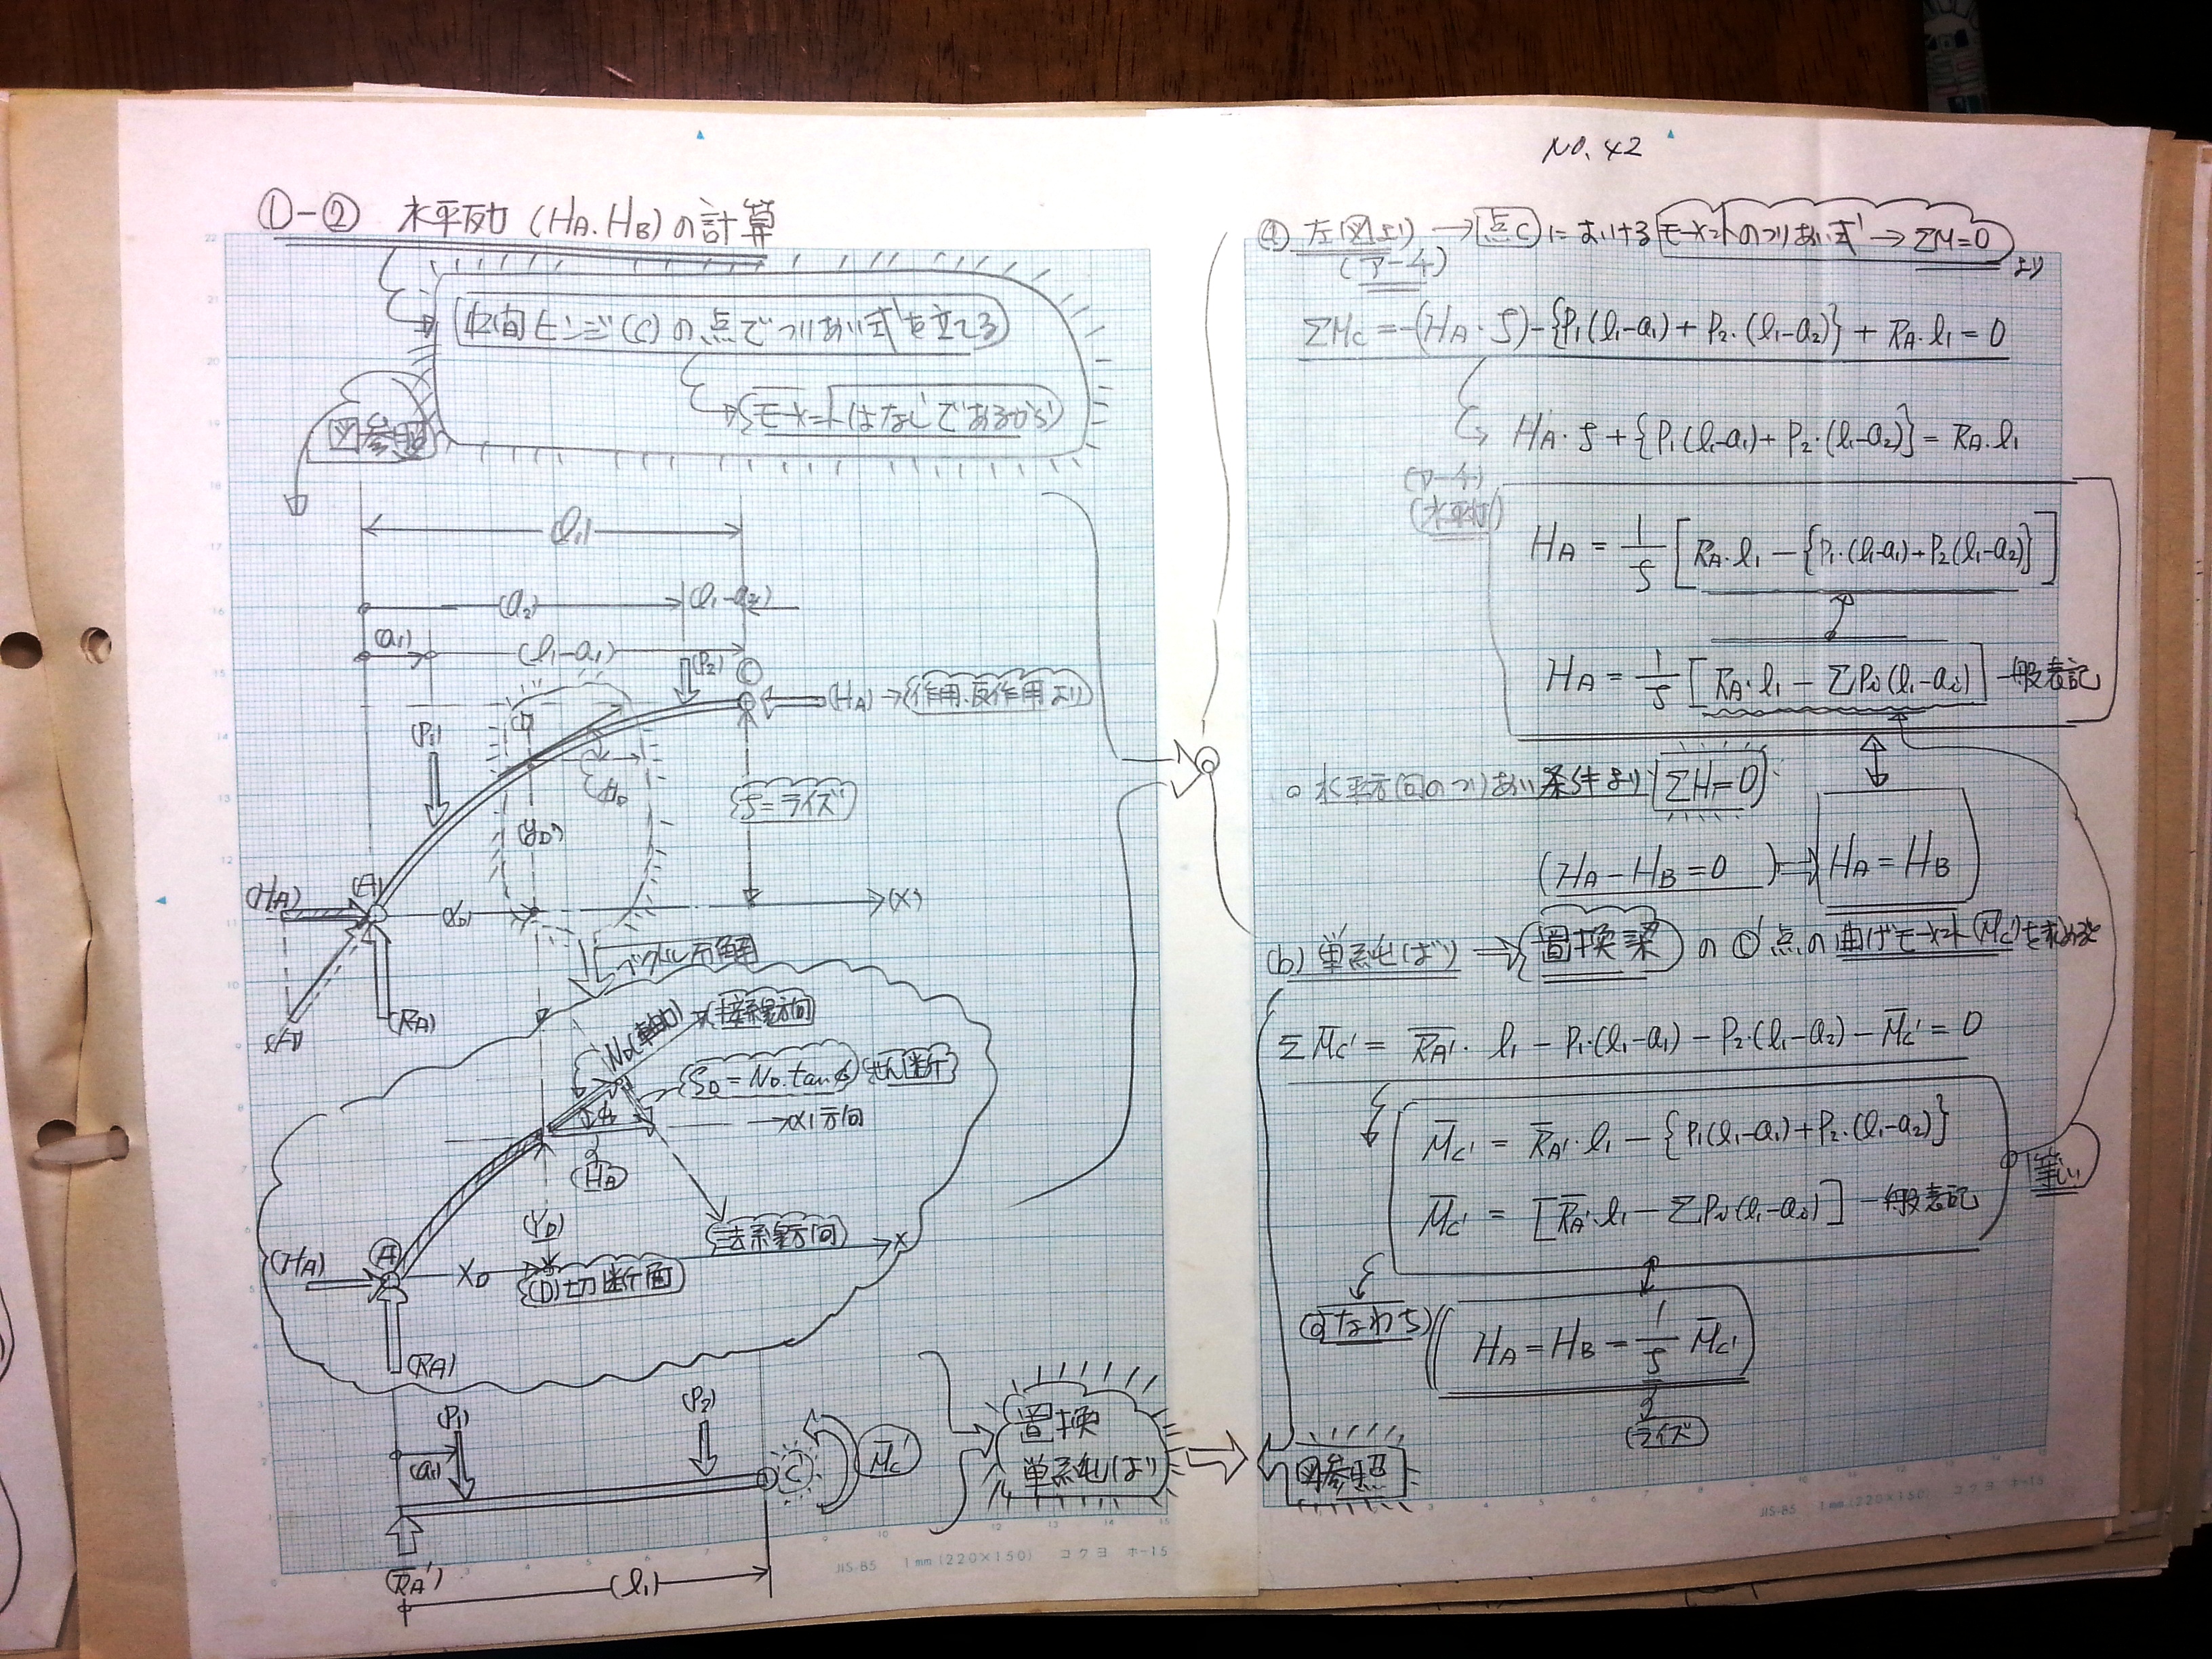 NO. 42
①-② 水平反力 (HA.HB) の計算
中間ヒンジ(C)の点でつりあい式を立てる
モーメントはなしであるから
図参照
(l1)
(a2)
(l1-a2)
(a1)
(l1-a1)
(P2)
C
(HA)→作用.反作用より
(P1)
f=ライズ
(yD)
(HA)
(A)
(x)
(RA)
(軸力)
接線方向
SD=ND.tanφ
せん断
→(x)方向
(HA)
(YD)
法線方向
x
(HA)
A
XD
(D)切断面
(RA)
(P1)
(P2)
(a1)
C'
M̄c'
置換
単純ばり
(R̄A')
(l1)
JIS-B5 1mm(220×150) コクヨ ホ-15
(a) 左図より →点Cにおけるモーメントのつりあい式→ΣM=0
(アーチ)
より
ΣMc=-(HA・f)-{P1(l1-a1)+P2.(l1-a2)}+RA.l1=0
HA・f+{P1(l1-a1)+P2.(l1-a2)}=RA.l1
(アーチ)
(水平反力)
HA=1/f[RA.l1-{P1.(l1-a1)+P2(l1-a2)}]
HA=1/f[RA.l1-ΣPi(l1-ai)]一般表記
○水平方向のつりあい条件より ΣH=0
(HA-HB=0)→HA=HB
(b)単純ばり→置換梁のC'点の曲げモーメント(M̄c')を求めると
ΣM̄c'=R̄A'.l1-P1.(l1-a1)-P2.(l1-a2)-M̄c'=0
M̄c'=R̄A'.l1-{P1(l1-a1)+P2.(l1-a2)}
等しい
M̄c'=[R̄A'.l1-ΣPi(l1-ai)]一般表記
すなわち
HA=HB=1/f M̄c'
(ライズ)
図参照
JIS-B5 1mm(220×150) コクヨ ホ-15